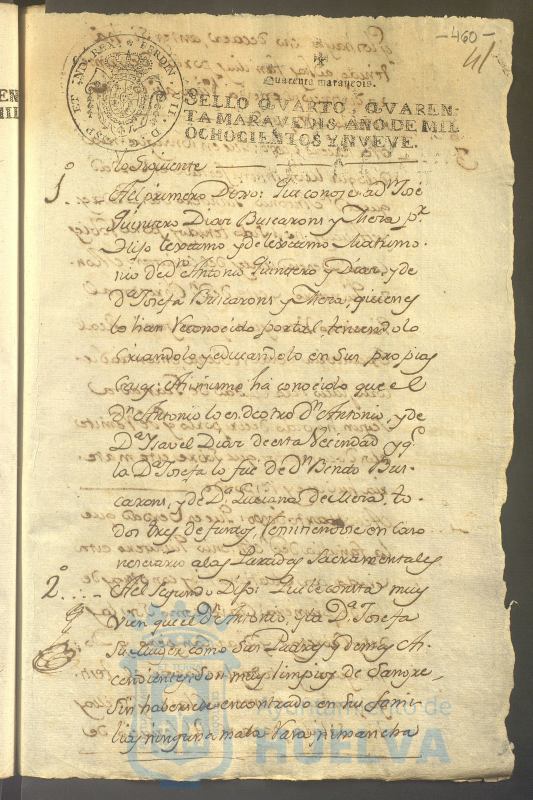 -460-
41
Quarenta maravedis.
SELLO QVARTO, QVAREN-
TA MARAVEDIS, AÑO DE MIL
OCHOCIENTOS Y NVEVE.
lo Siguiente
1.º Al primero Dixo: Que conose a Dn. José
Quintero Diaz Buscarons y Mora pr.
Hijo lexitimo y de lexitimo Matrimo-
nio de Dn. Antonio Quintero y Diaz, y de
Dª. Josefa Buscarons y Mora, quienes
lo han reconocido por tal teniendolo
Criandolo y educandolo en sus propias
Casas: Asimismo ha conocido que el
Dn. Antonio lo es de otro Dn. Antonio, y de
Dª. Isavel Diaz de esta Vecindad y qe.
la Dª. Josefa lo fue de Dn. Benito Bus-
carons, y de Dª. Luciana de Mora, to-
dos tres defuntos, remitiendose en caso
necesario a las Partidas Sacramentales
2.º Al Segundo Dijo: Que le consta muy
vien que el Dn. Antonio, y la Dª. Josefa
su Muger como sus Padres y demas As-
cendientes son muy limpios de Sangre,
sin haverse encontrado en su fami-
lia ninguna mala raza ni mancha
Ayuntamiento de
HUELVA